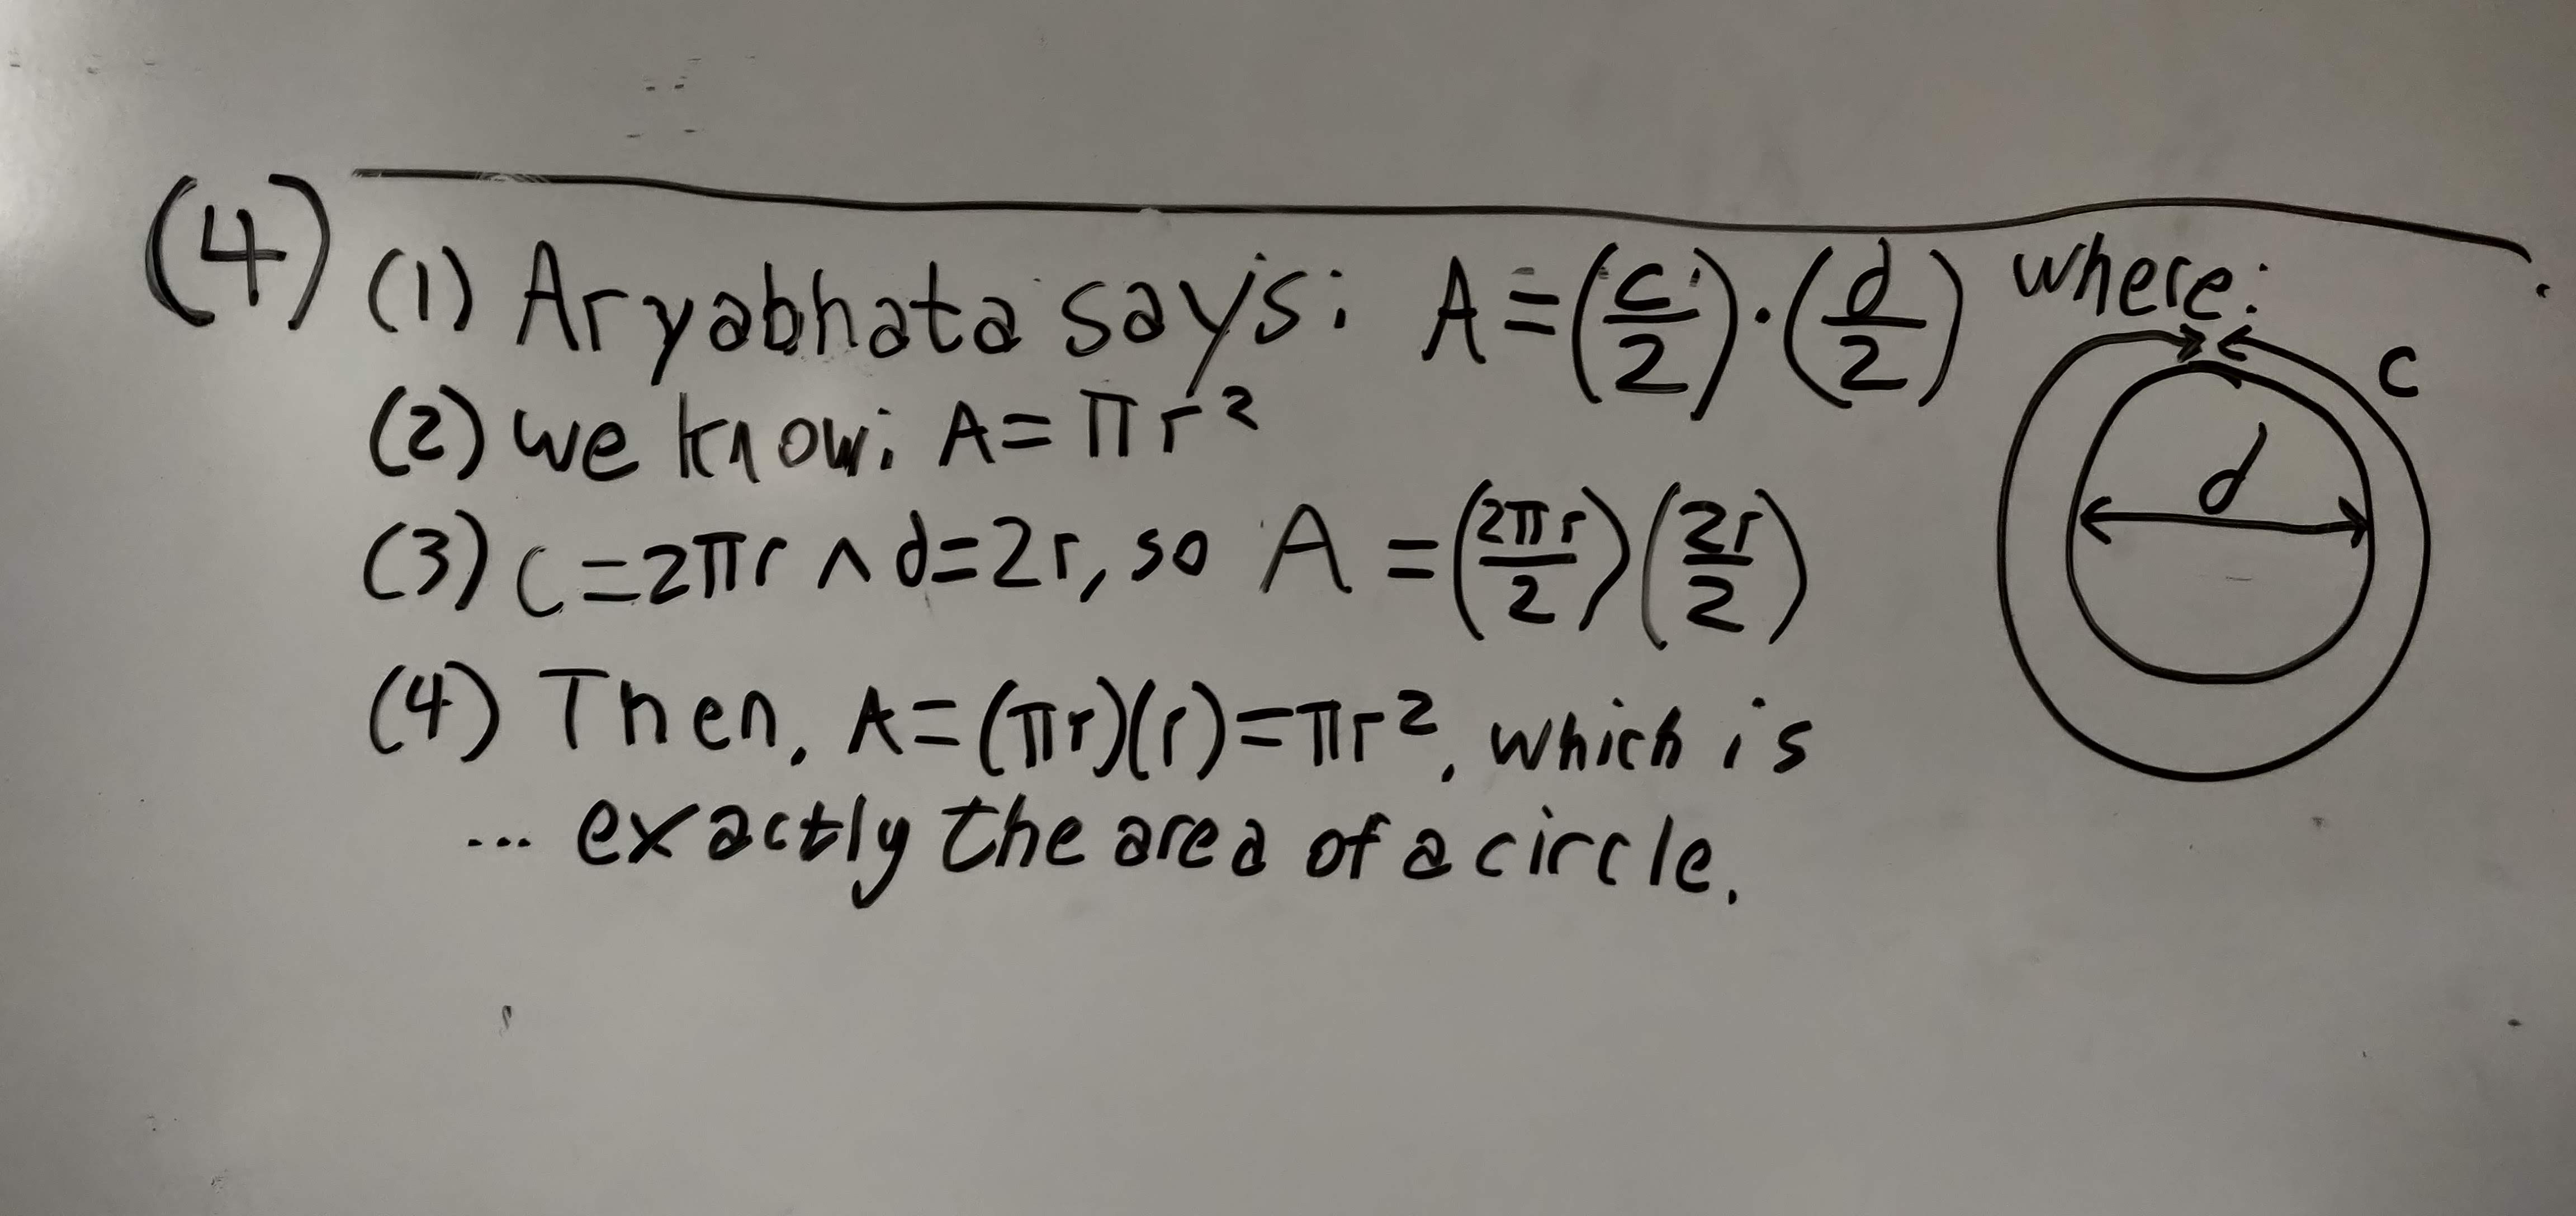 (4) (1) Aryabhata says: A = (c/2) · (d/2) where:
c
(2) we know: A = πr²
d
(3) C = 2πr ∧ d = 2r, so A = (2πr/2)(2r/2)
(4) Then, A = (πr)(r) = πr², which is
... exactly the area of a circle.